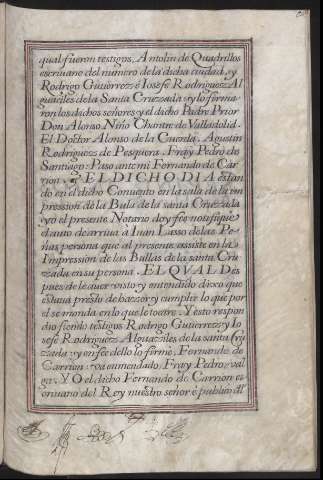 qual fueron testigos, Antolin de Quadrillos
escriuano del numero de la dicha ciudad, y
Rodrigo Gutierrez é Iosefe Rodriguez Al
guaciles de la Santa Cruzada: y lo firma
ron los dichos señores y el dicho Padre Prior
Don Alonso Niño Chantre de Valladolid.
El Doctor Alonso de la Agustin
Rodriguez de Pesquera. Fray Pedro de
Santiago: Paso ante mi Fernando de Car
rion. Y EL DICHO DIA estan
do en el dicho Conuento en la sala de la im
pression de la Bula de la santa Cruzada
yo el presente Notario doy fee notifique
el auto de arriua à Iuan Lasso de las Pe
ñas persona que al presente assiste en la
Impression de las Bullas de la santa Cru
zada en su persona. EL QVAL Des
pues de le auer visto y entendido dixo que
estaua presto de hazer y cumplir lo que por
el se manda en lo que le tocare. Y esto respon
dio siendo testigos Rodrigo Gutierrez y Io
sefe Rodriguez Alguaziles de la santa Cru
zada: y en fee dello lo firmò. Fernando de
Carrion: va enmendado. Fray Pedro: val
ga. YO el dicho Fernando de Carrion es
criuano del Rey nuestro señor é publico del